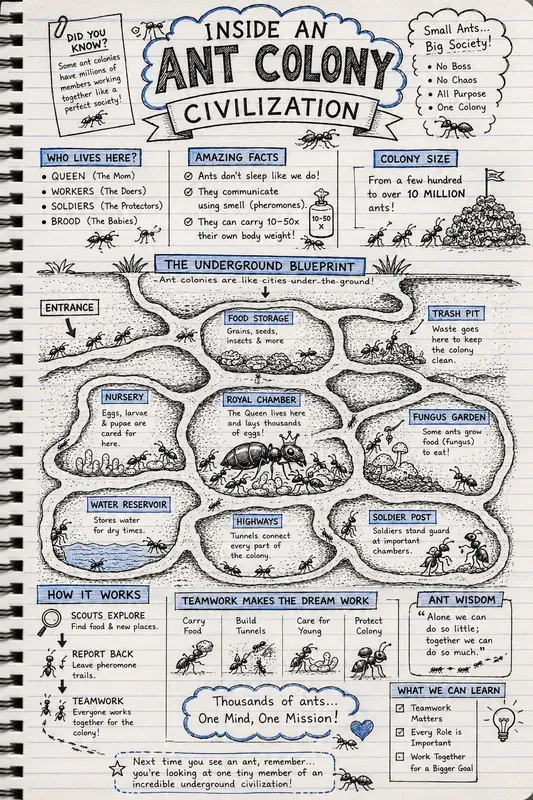 DID YOU
KNOW?
Some ant colonies
have millions of
members working
together like a
perfect society!
INSIDE AN
ANT COLONY
CIVILIZATION
Small Ants...
Big Society!
• No Boss
• No Chaos
• All Purpose
• One Colony
WHO LIVES HERE?
• QUEEN (The Mom)
• WORKERS (The Doers)
• SOLDIERS (The Protectors)
• BROOD (The Babies)
AMAZING FACTS
Ants don't sleep like we do!
They communicate
using smell (pheromones).
They can carry 10-50x
their own body weight!
10-50
X
COLONY SIZE
From a few hundred
to over 10 MILLION
ants!
THE UNDERGROUND BLUEPRINT
Ant colonies are like cities under the ground!
ENTRANCE
FOOD STORAGE
Grains, seeds,
insects & more
TRASH PIT
Waste goes
here to keep
the colony
clean.
NURSERY
Eggs, larvae
& pupae are
cared for
here.
ROYAL CHAMBER
The Queen lives here
and lays thousands
of eggs!
FUNGUS GARDEN
Some ants grow
food (fungus)
to eat!
WATER RESERVOIR
Stores water
for dry times.
HIGHWAYS
Tunnels connect
every part of
the colony.
SOLDIER POST
Soldiers stand guard
at important
chambers.
HOW IT WORKS
SCOUTS EXPLORE
Find food & new places.
REPORT BACK
Leave pheromone
trails.
TEAMWORK
Everyone works
together for the
colony!
TEAMWORK MAKES THE DREAM WORK
Carry
Food
Build
Tunnels
Care for
Young
Protect
Colony
Thousands of ants...
One Mind, One Mission!
ANT WISDOM
"Alone we can
do so little;
together we can
do so much."
WHAT WE CAN LEARN
Teamwork
Matters
Every Role is
Important
Work Together
for a Bigger Goal
Next time you see an ant, remember...
you're looking at one tiny member of an
incredible underground civilization!